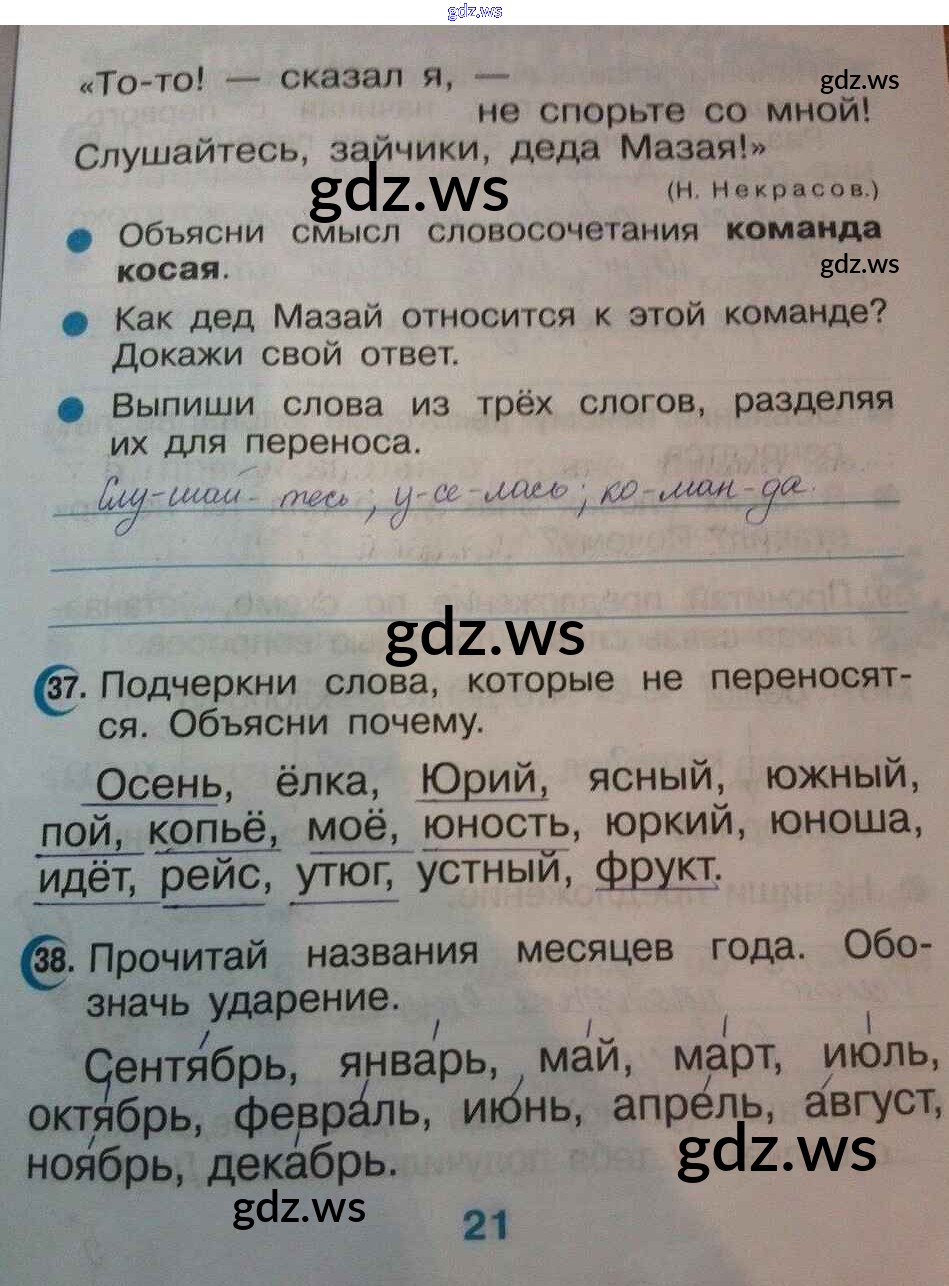 gdz.ws
«То-то! — сказал я, —
gdz.ws
не спорьте со мной!
Слушайтесь, зайчики, деда Мазая!»
gdz.ws
(Н. Некрасов.)
Объясни смысл словосочетания команда
косая.
gdz.ws
Как дед Мазай относится к этой команде?
Докажи свой ответ.
Выпиши слова из трёх слогов, разделяя
их для переноса.
Слу-шай-тесь; у-се-лась; ко-ман-да.
gdz.ws
37. Подчеркни слова, которые не переносят-
ся. Объясни почему.
Осень, ёлка, Юрий, ясный, южный,
пой, копьё, моё, юность, юркий, юноша,
идёт, рейс, утюг, устный, фрукт.
38. Прочитай названия месяцев года. Обо-
значь ударение.
Сентябрь, январь, май, март, июль,
октябрь, февраль, июнь, апрель, август,
ноябрь, декабрь.
gdz.ws
gdz.ws
21